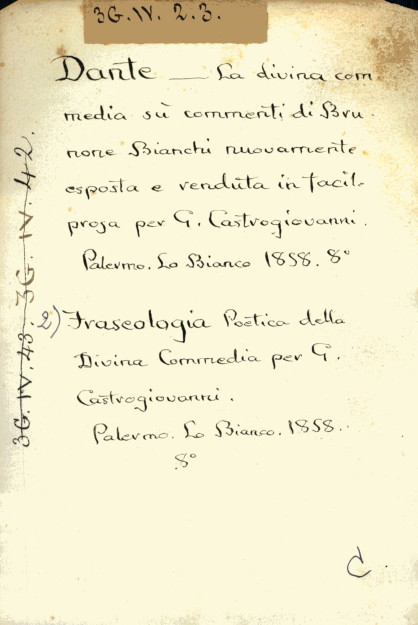 3G. IV. 2.3.
Dante — La divina com
media sù commenti di Bru-
none Bianchi nuovamente
esposta e venduta in facil-
prosa per G. Castrogiovanni.
Palermo. Lo Bianco 1858. 8°
2) Fraseologia Poëtica della
Divina Commedia per G.
Castrogiovanni.
Palermo. Lo Bianco. 1858.
8°
3G. IV. 43. 3G. IV. 42.
C.